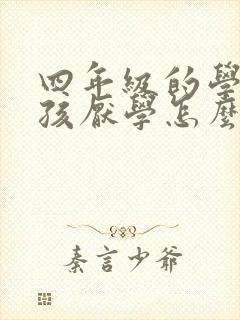 四年級的學
孩厭學怎麼
秦言少爺